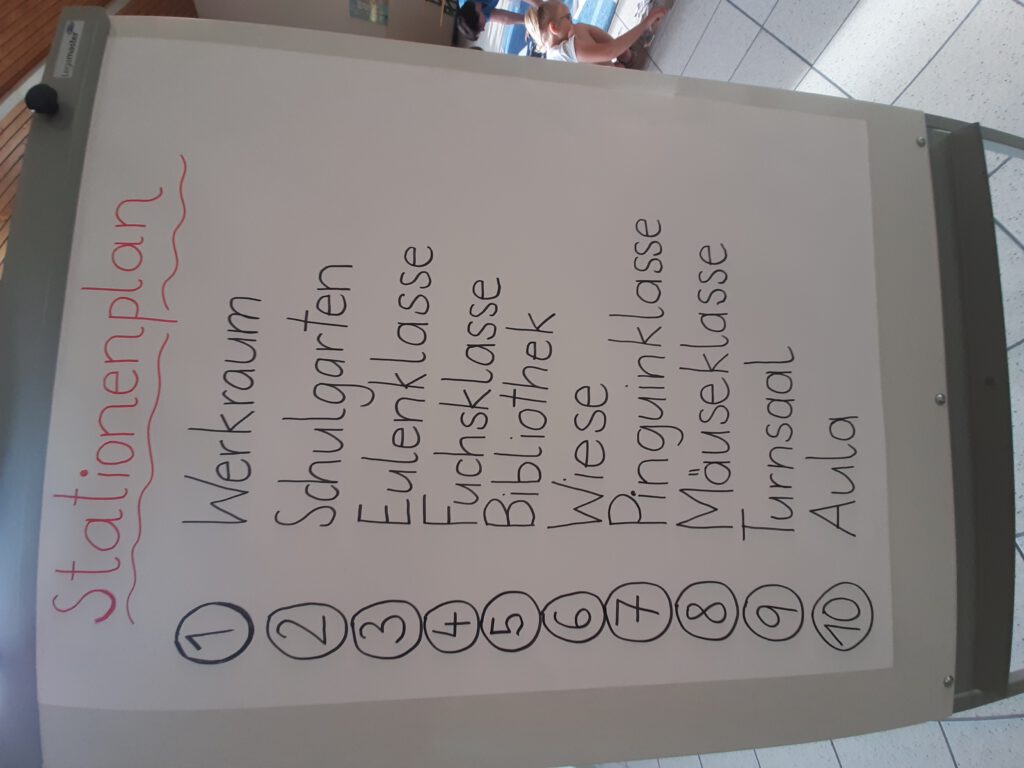 Stationenplan
1 Werkraum
2 Schulgarten
3 Eulenklasse
4 Fuchsklasse
5 Bibliothek
6 Wiese
7 Pinguinklasse
8 Mäuseklasse
9 Turnsaal
10 Aula
Legamaster